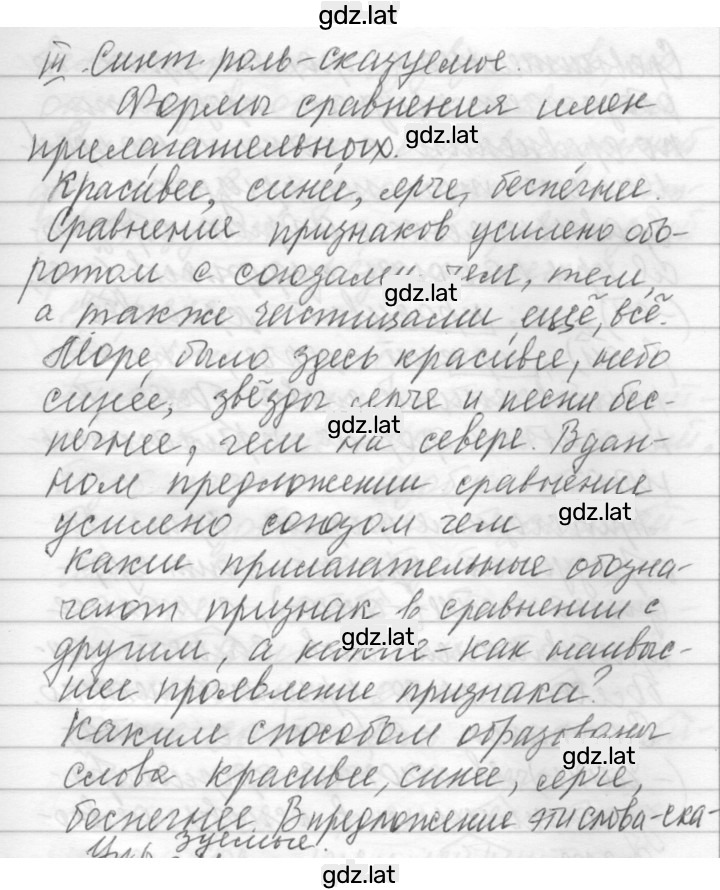 gdz.lat
III. Синт. роль-сказуемое.
Формы сравнения имен
прилагательных.
gdz.lat
Красивее, синее, ярче, беспечнее.
Сравнение признаков усилено обо-
ротом с союзами чем, тем,
gdz.lat
а также частицами ещё, всё.
Море было здесь красивее, небо
синее, звёзды ярче и песни бес-
gdz.lat
печнее, чем на севере. В дан-
ном предложении сравнение
gdz.lat
усилено союзом чем
Какие прилагательные обозна-
чают признак в сравнении с
gdz.lat
другим, а какие-как наивыс-
шее проявление признака?
Каким способом образованы
gdz.lat
слова красивее, синее, ярче,
беспечнее. В предложение эти слова-ска-
зуемые.
gdz.lat